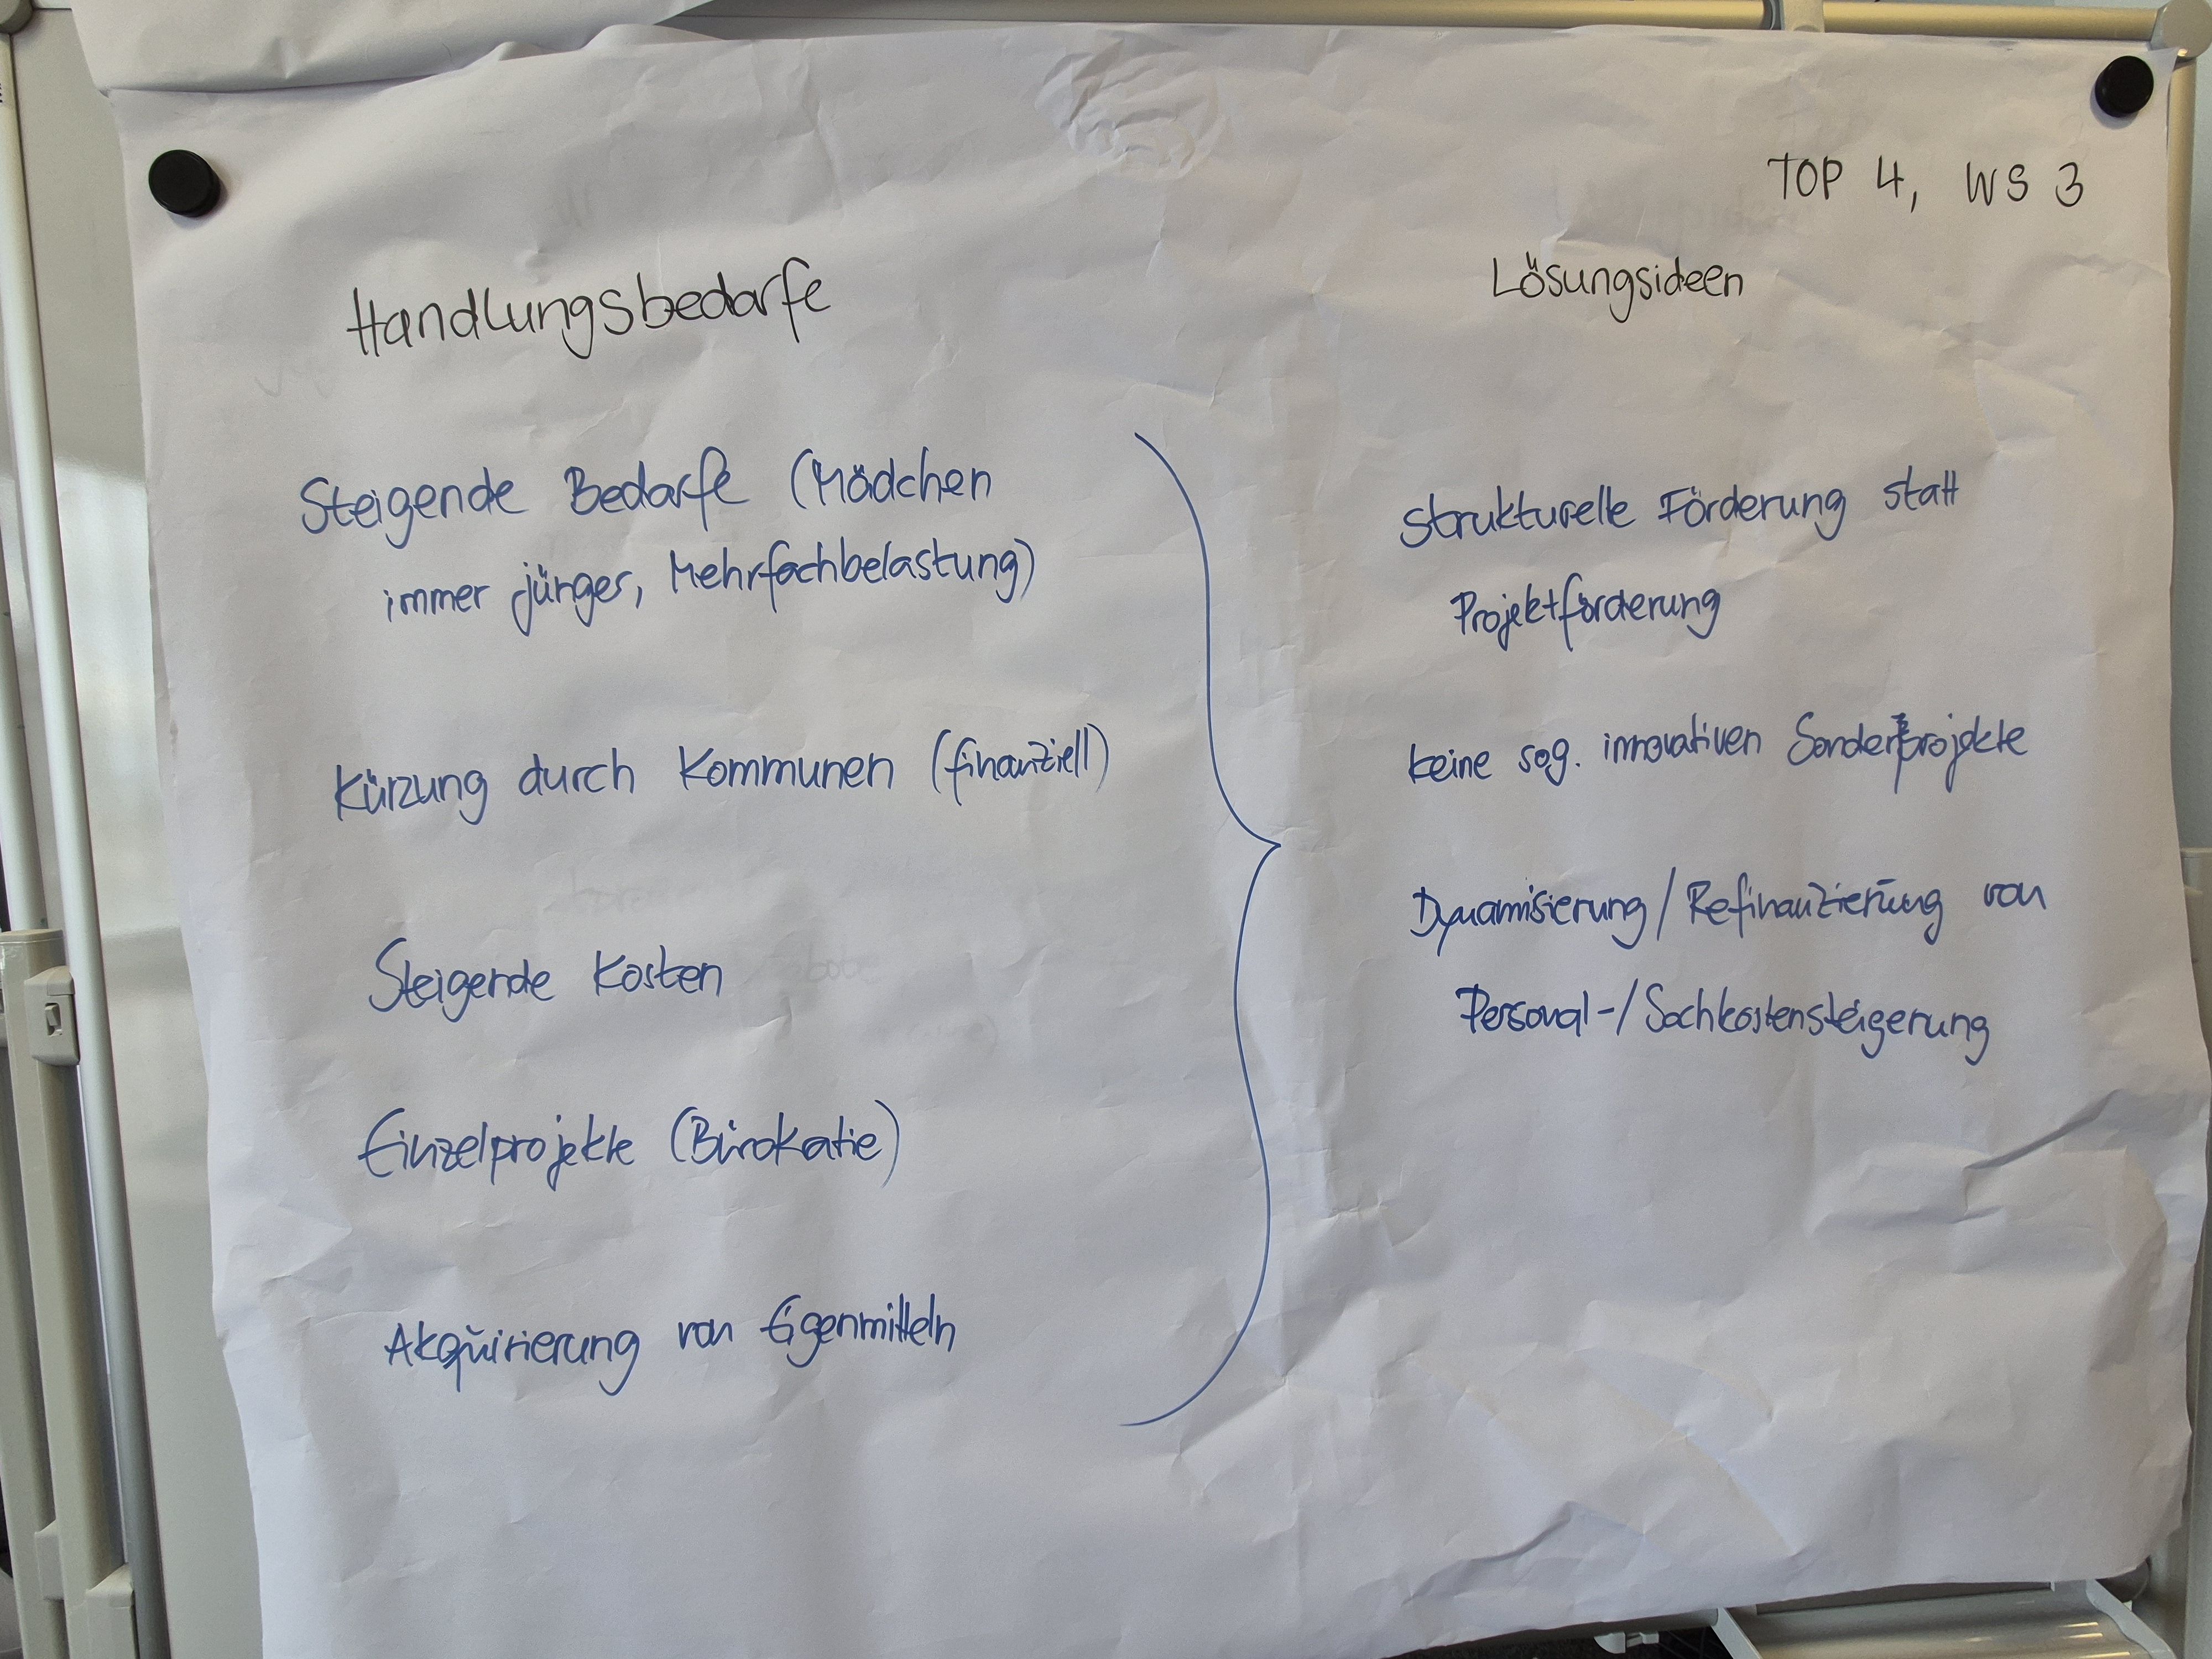 TOP 4, WS 3
Handlungsbedarfe
Steigende Bedarfe (Mädchen
immer jünger, Mehrfachbelastung)
Kürzung durch Kommunen (finanziell)
Steigende Kosten
Einzelprojekte (Bürokatie)
Akquirierung von Eigenmitteln
Lösungsideen
strukturelle Förderung statt
Projektförderung
keine sog. innovativen Sonderprojekte
Dynamisierung/Refinanzierung von
Personal-/Sachkostensteigerung